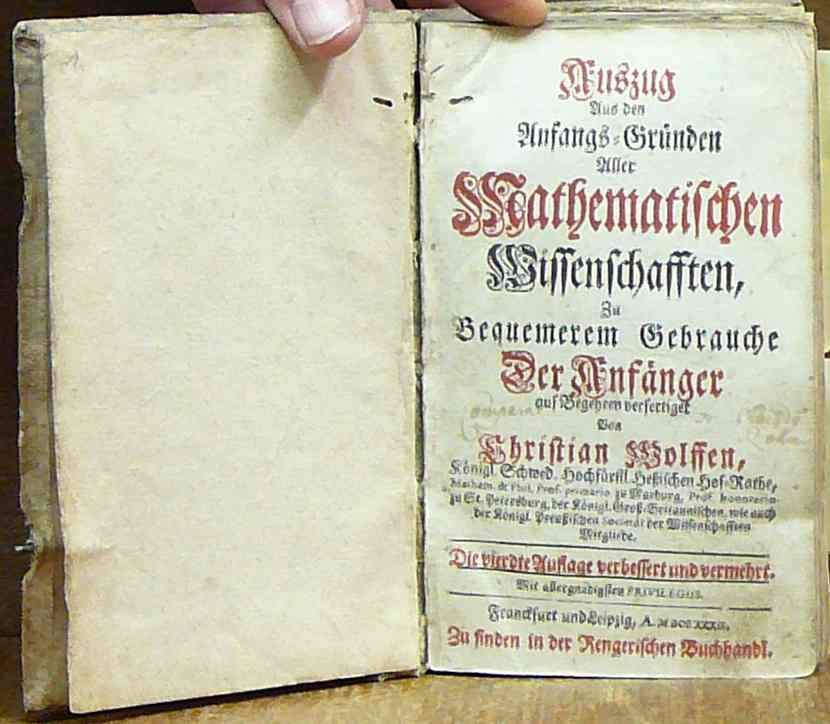 Auszug
Aus den
Anfangs-Gründen
Aller
Mathematischen
Wissenschafften,
Zu
Bequemerem Gebrauche
Der Anfänger
auf Begehren verfertiget
Von
Christian Wolffen,
Königl. Schwed. Hochfürstl. Heßischen Hof-Rathe,
Mathem. & Phil. Prof. primario zu Marburg, Prof. honorario
zu St. Petersburg, der Königl. Groß-Britannischen, wie auch
der Königl. Preußischen Societät der Wissenschafften
Mitgliede.
Die vierdte Auflage verbessert und vermehrt.
Mit allergnädigsten PRIVILEGIIS.
Franckfurt und Leipzig, A.
Zu finden in der Rengerischen Buchhandl.